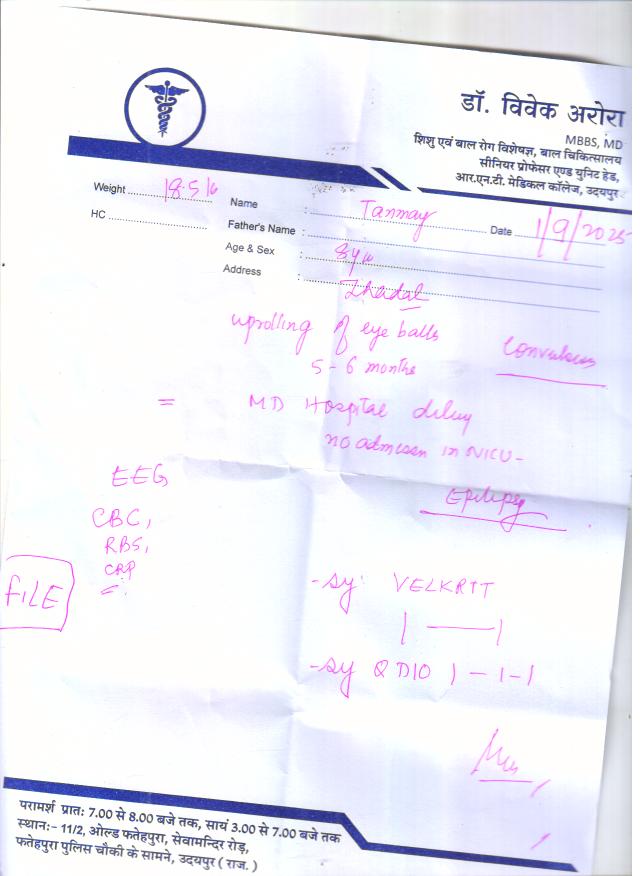 डॉ. विवेक अरोरा
MBBS, MD
शिशु एवं बाल रोग विशेषज्ञ, बाल चिकित्सालय
सीनियर प्रोफेसर एण्ड युनिट हेड,
आर.एन.टी. मेडिकल कॉलेज, उदयपुर
Weight 18.5 k
Name : Tanmay Date 1/9/2025
HC
Father's Name :
Age & Sex : 8y
Address : Jhadol
uprolling of eye balls
5-6 months
Convulsions
= MD Hospital delivery
no admission in NICU -
EEG
Epilepsy
CBC,
RBS,
CRP
FILE
- Sy. VELKRIT
| — |
- Sy QDIO 1-1-1
परामर्श प्रातः 7.00 से 8.00 बजे तक, सायं 3.00 से 7.00 बजे तक
स्थान:- 11/2, ओल्ड फतेहपुरा, सेवामन्दिर रोड़,
फतेहपुरा पुलिस चौकी के सामने, उदयपुर ( राज. )